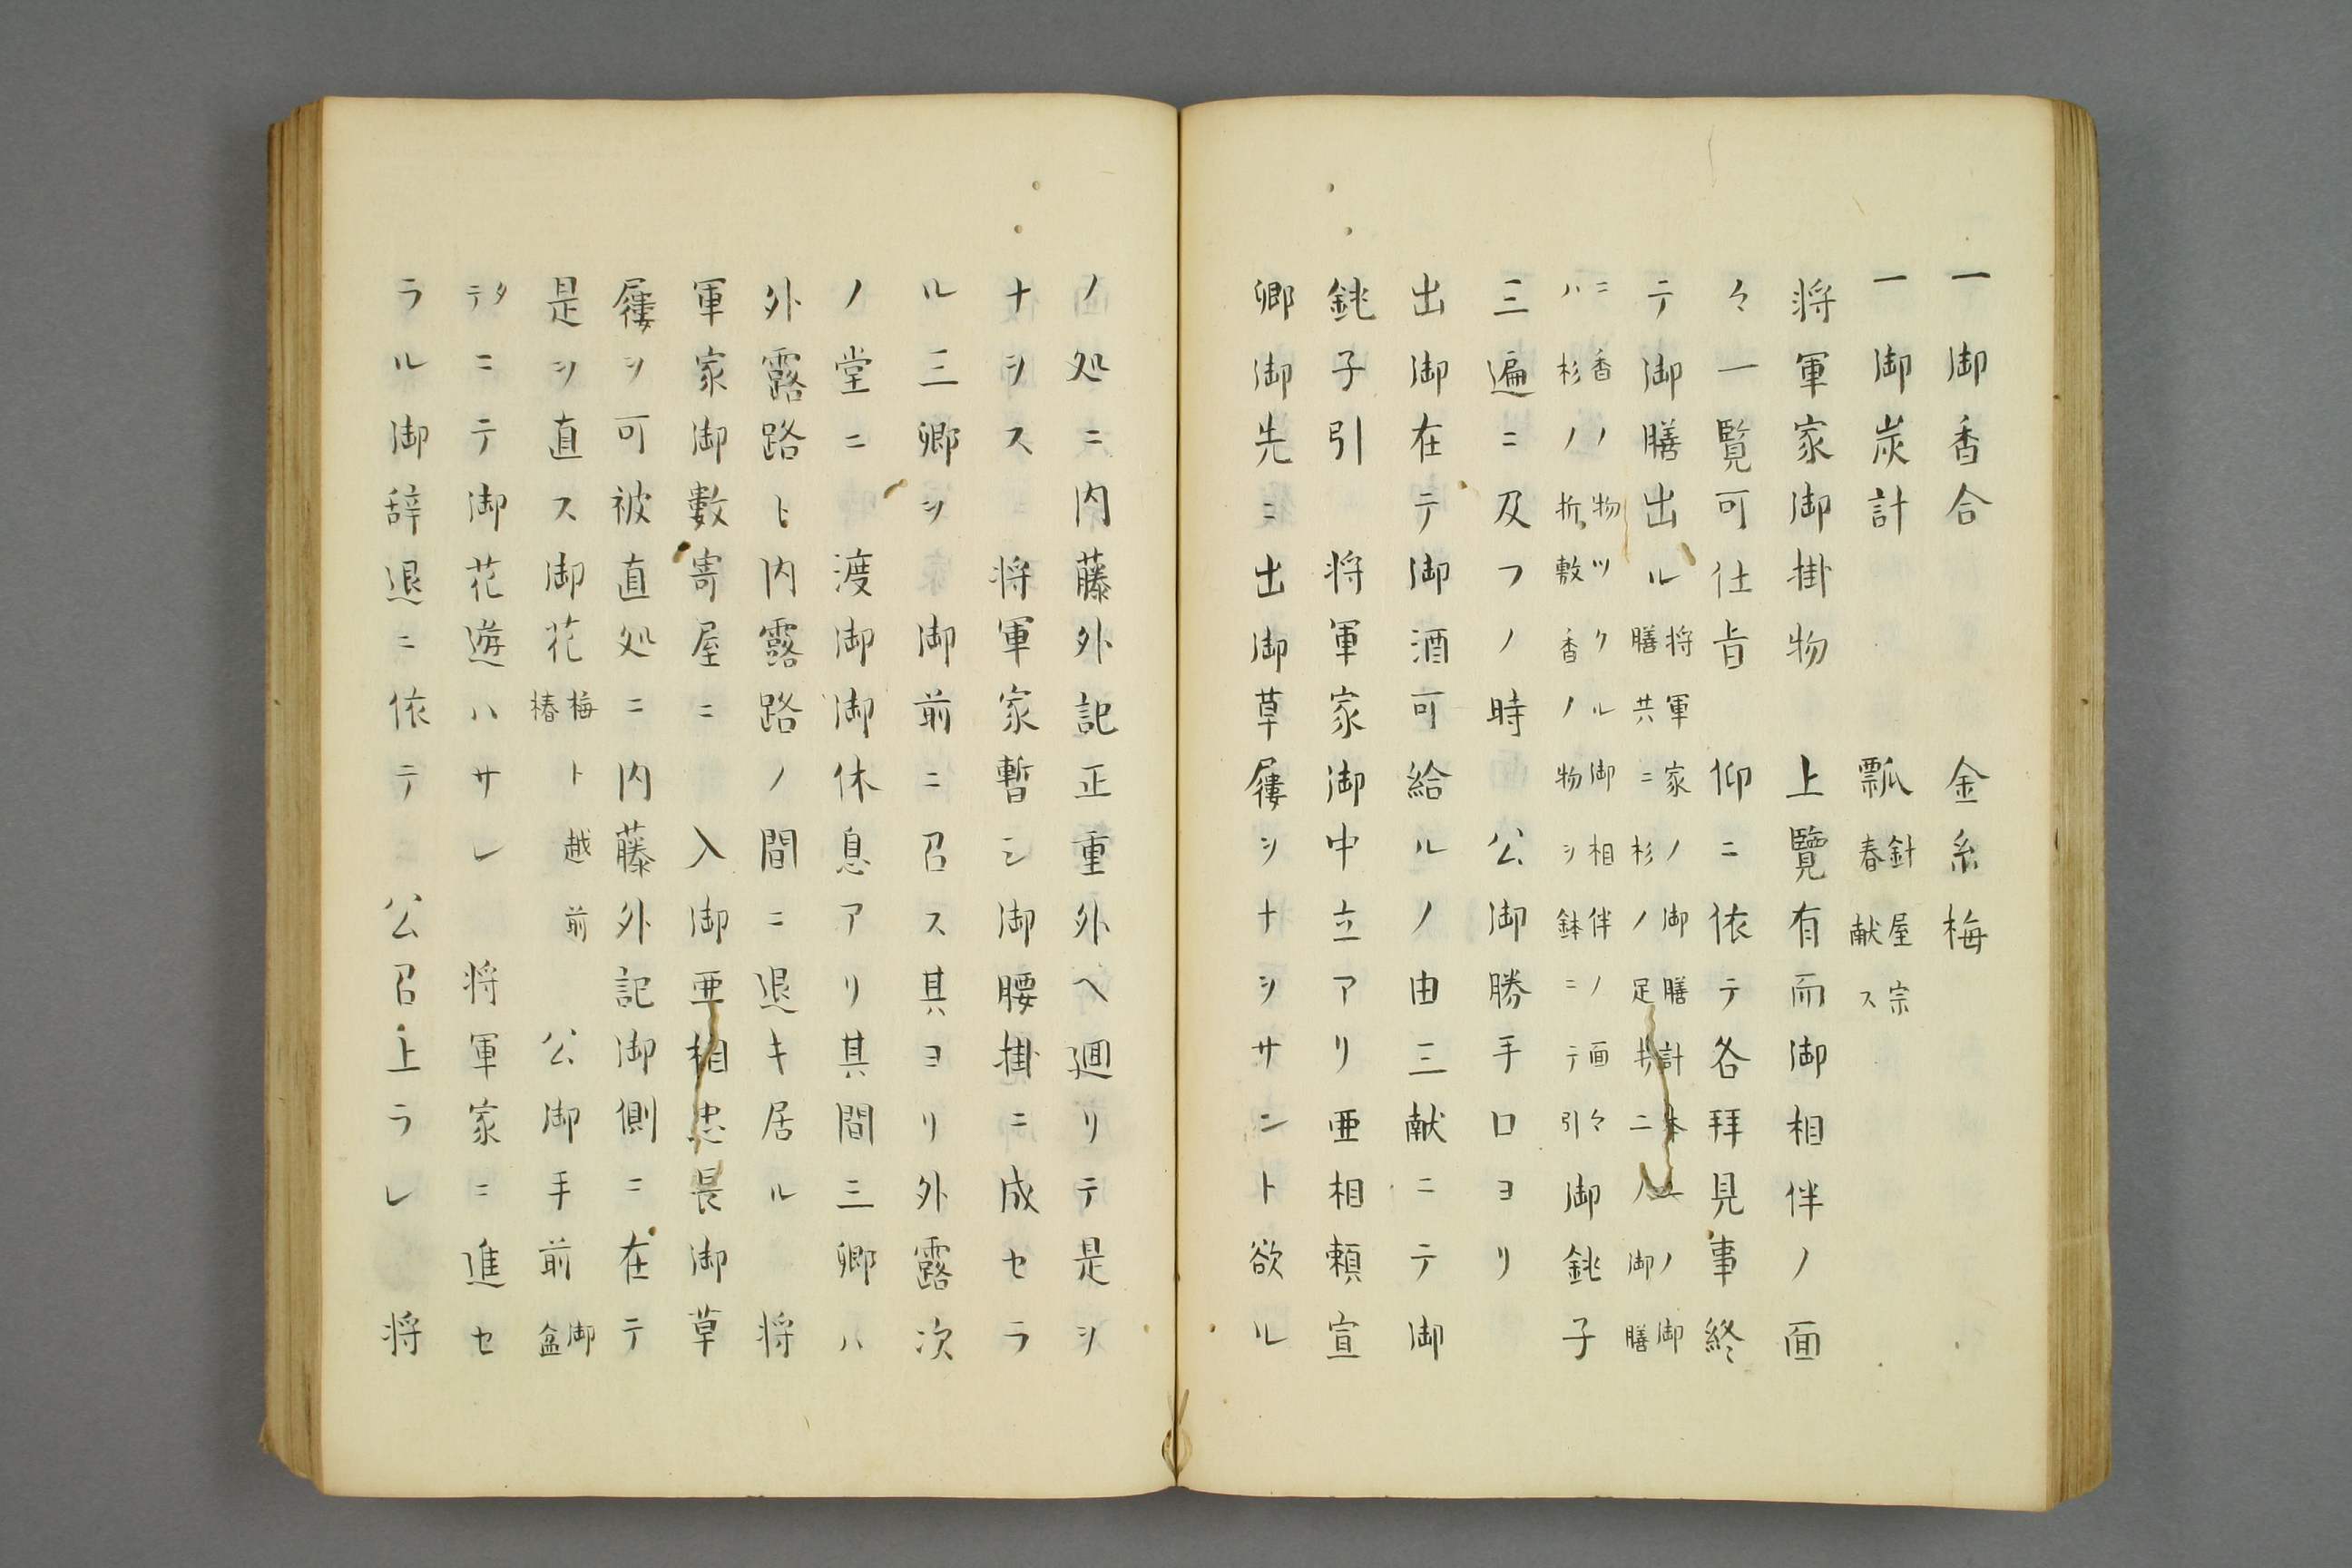 一御香合　　　金糸梅
一御炭計　　　瓢針屋宗春献ス
将軍家御掛物　上覧有而御相伴ノ面
々一覧可仕旨　仰ニ依テ各拝見事終
テ御膳出ル将軍家ノ御膳計本ノ御膳共ニ杉ノ足打二人御膳
ニ香ノ物ツクル御相伴ノ面々ハ杉ノ折敷香ノ物ヲ鉢ニテ引御銚子
三遍ニ及フノ時　公御勝手口ヨリ
出御在テ御酒可給ルノ由三献ニテ御
銚子引　将軍家御中立アリ亜相頼宣
卿御先ニ出御草履ヲナヲサント欲ル
ノ処ニ内藤外記正重外ヘ廻リテ是ヲ
ナヲス　将軍家暫シ御腰掛ニ成セラ
ル三卿ヲ　御前ニ召ス其ヨリ外露次
ノ堂ニ　渡御御休息アリ其間三卿ハ
外露路ト内露路ノ間ニ退キ居ル　将
軍家御數寄屋ニ　入御亜相忠長御草
履ヲ可被直処ニ内藤外記御側ニ在テ
是ヲ直ス御花梅椿ト越前　公御手前御盆
タテニテ御花遊ハサレ　将軍家ニ進セ
ラル御辞退ニ依テ　公召上ラレ　将